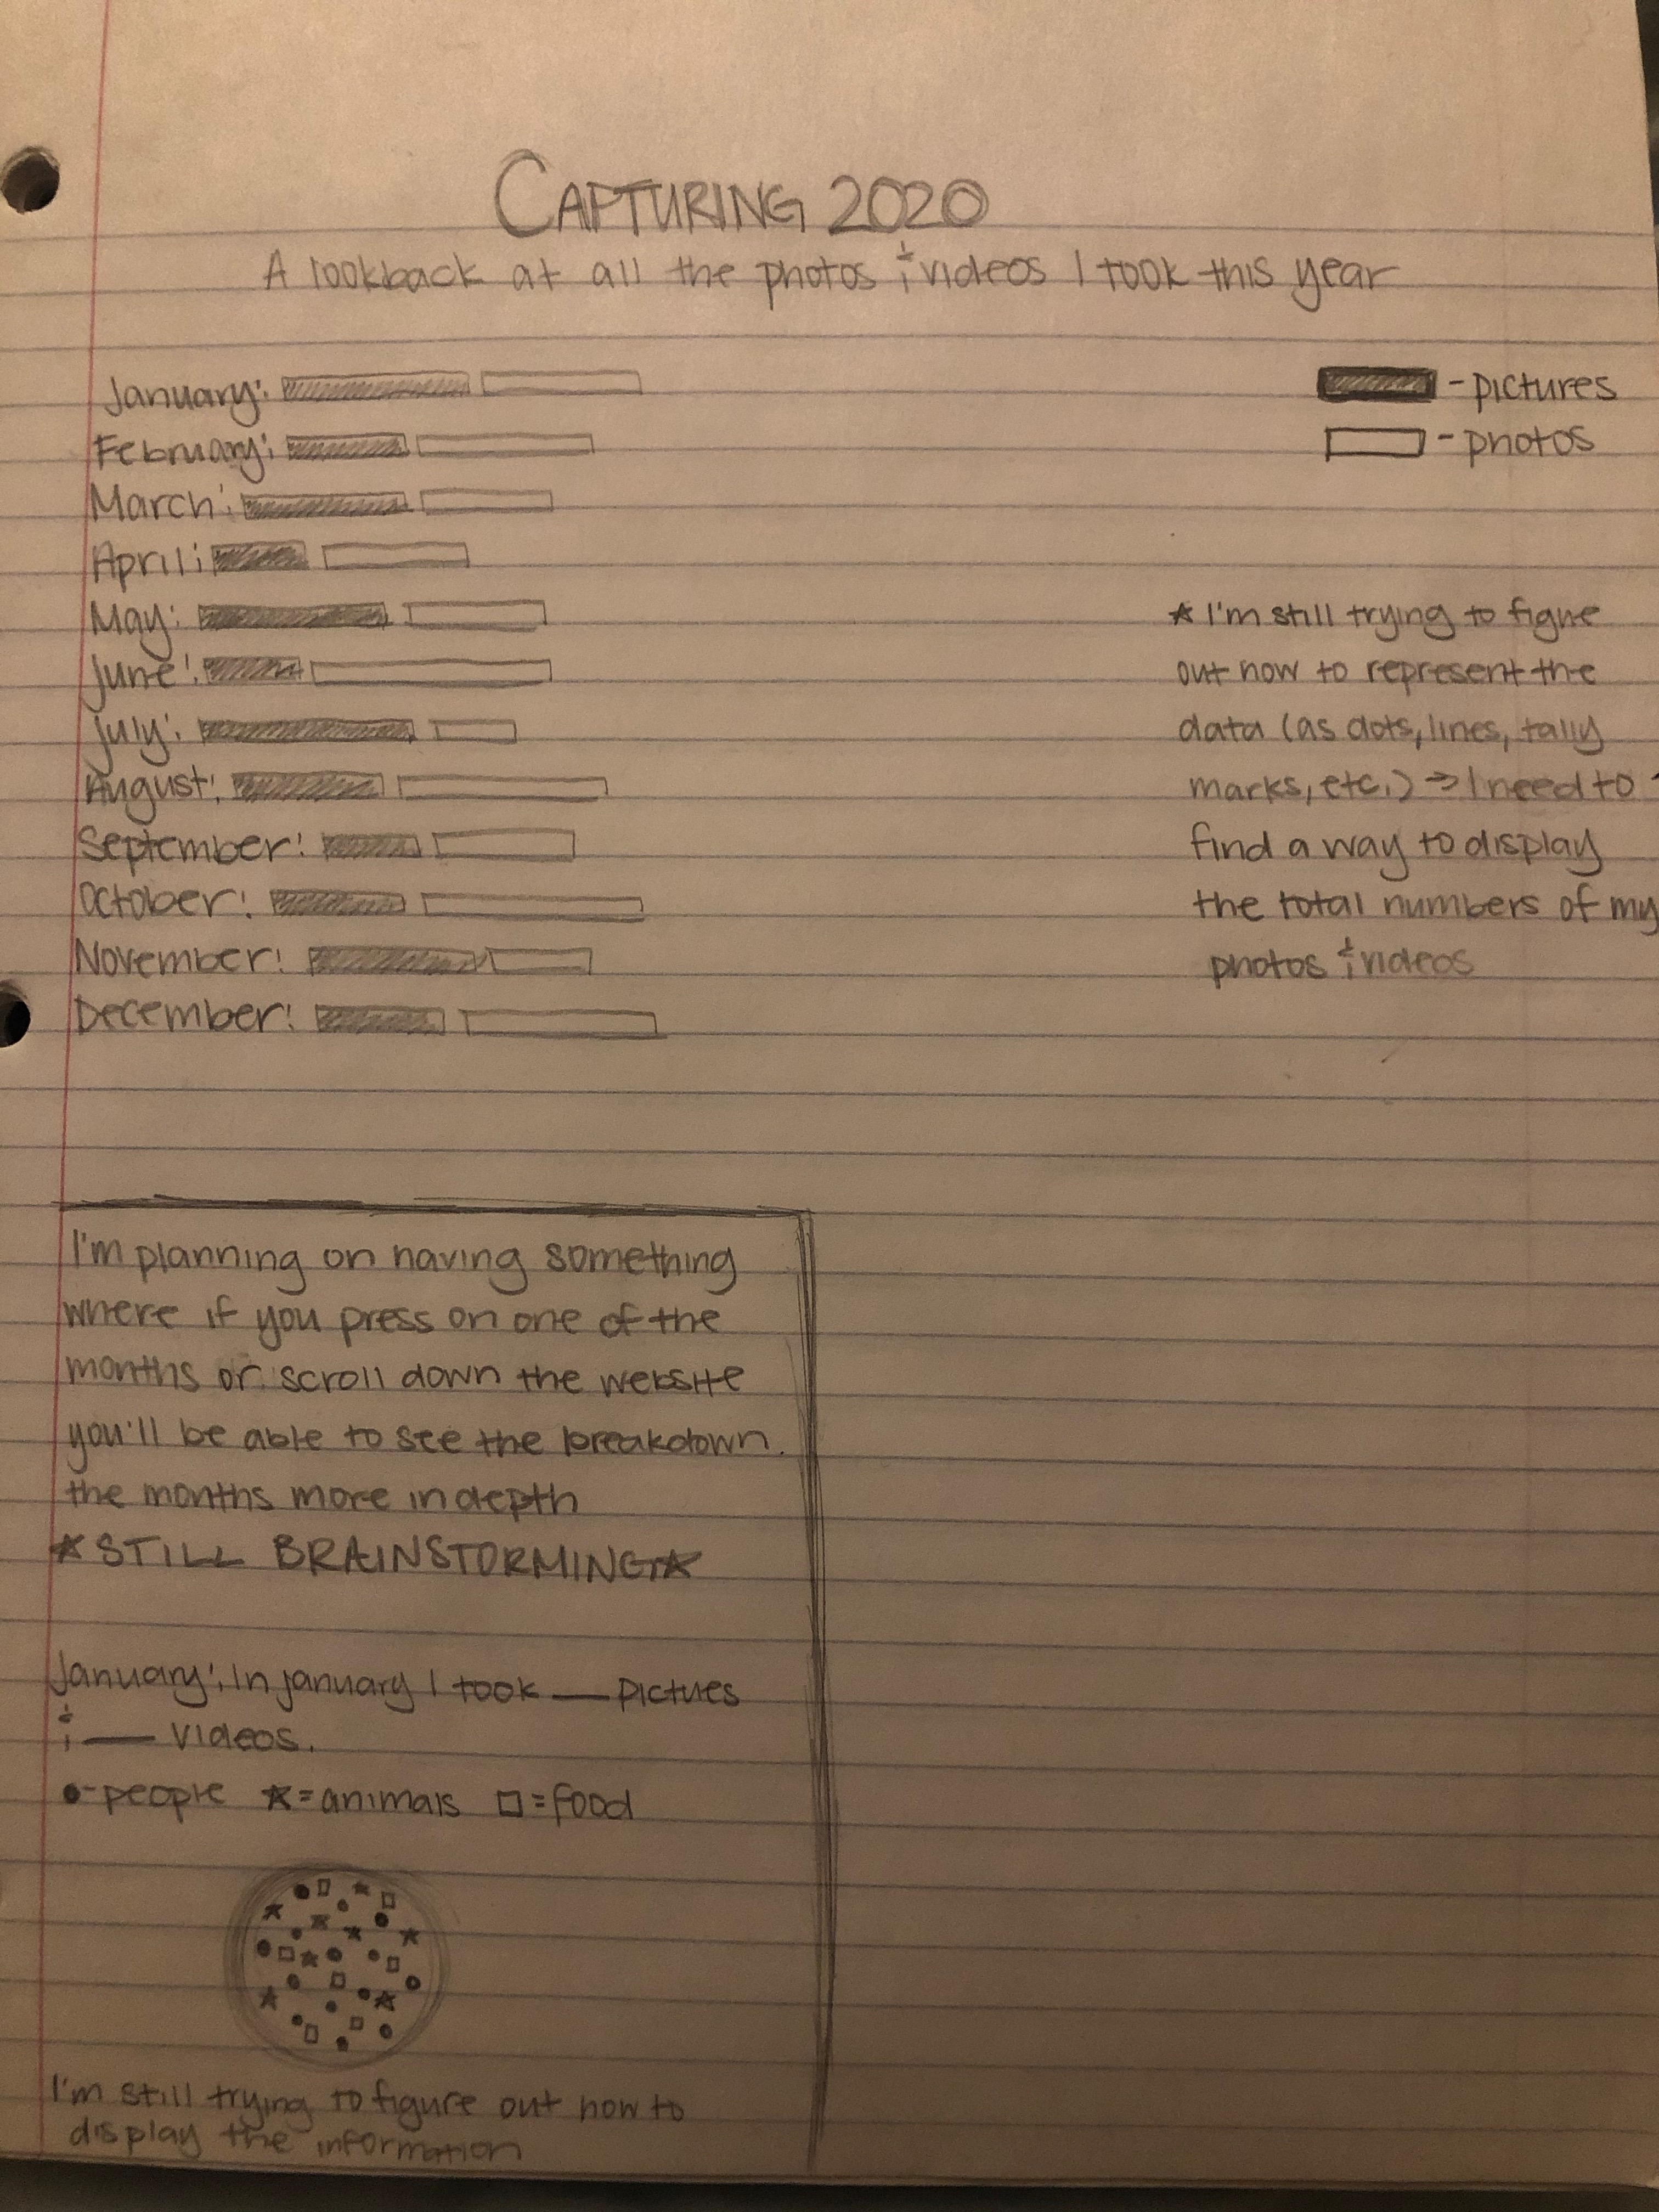 CAPTURING 2020
A lookback at all the photos & videos I took this year
January:
February:
March:
April:
May:
June:
July:
August:
September:
October:
November:
December:
- pictures
- photos
★ I'm still trying to figue
out how to represent the
data (as dots, lines, tally
marks, etc.) → I need to
find a way to display
the total numbers of my
photos & videos
I'm planning on having something
where if you press on one of the
months or scroll down the website
you'll be able to see the breakdown.
the months more in depth
★STILL BRAINSTORMING★
January: In january I took — pictues
& — videos.
●-people ★=animals □=food
I'm still trying to figure out how to
display the information